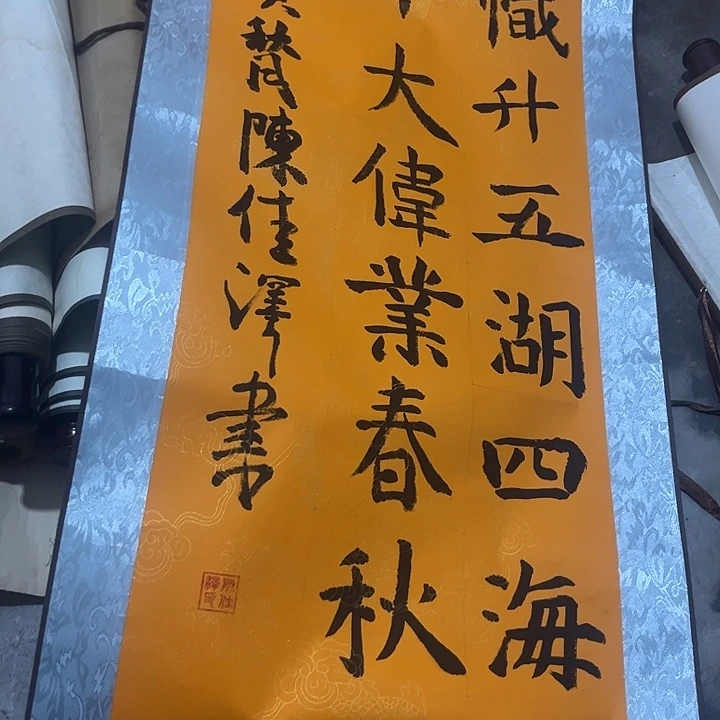 幟升五湖四海
大偉業春秋
陳佳澤書